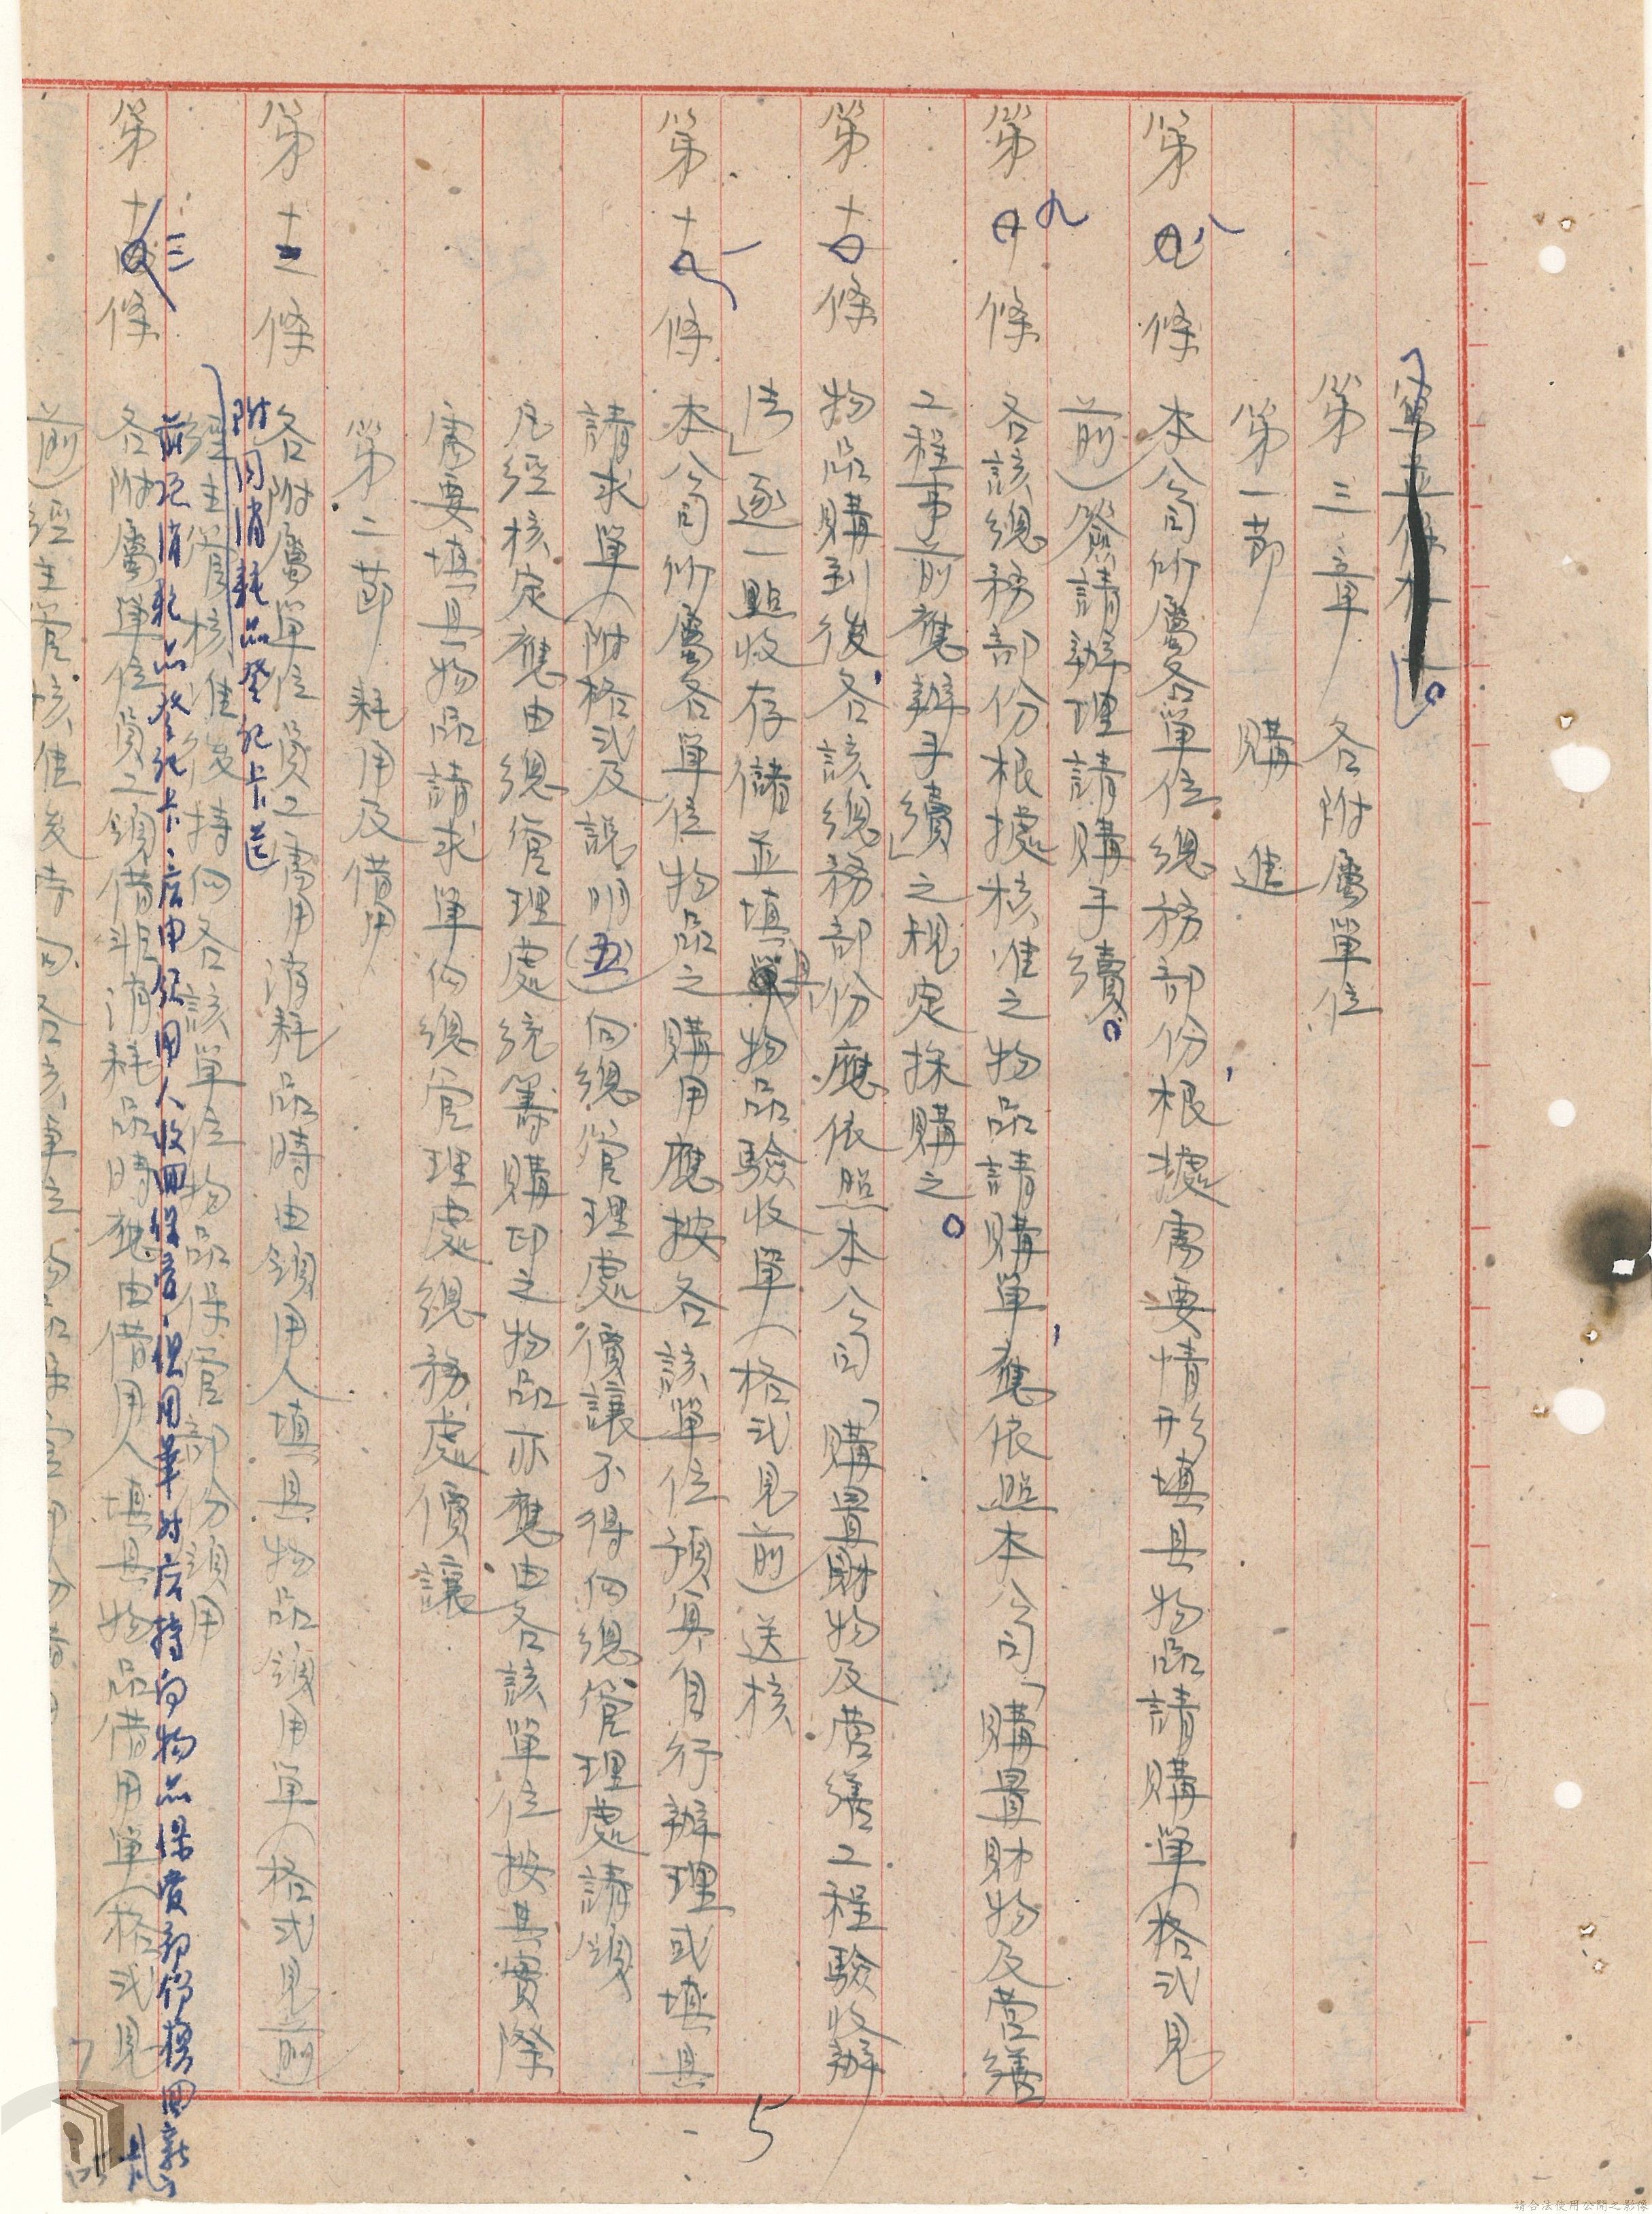 第三章 各附屬單位
第一節 購進
第八條 本公司所屬各單位總務部份根據需要情形填具物品請購單(格式見
前)簽請辦理請購手續。
第九條 各該總務部份根據核准之物品請購單,應依照本公司「購置財物及營繕
工程事前應辦手續」之規定採購之。
第十條 物品購到後,各該總務部份應依照本公司「購置財物及營繕工程驗收辦
法」逐一點收存儲並填具物品驗收單(格式見前)送核
第十一條 本公司所屬各單位物品之購用應按各該單位預算自行辦理或填具
請求單(附格式及說明(五))向總管理處價讓不得向總管理處請領
凡經核定應由總管理處統籌購印之物品亦應由各該單位按其實際
需要填具物品請求單向總管理處總務處價讓
第二節 耗用及借用
第十二條 各附屬單位員工需用消耗品時由領用人填具物品領用單(格式見前)
附同消耗品登記卡送
經主管核准後持向各該單位物品保管部份領用
前項消耗品登記卡,應由領用人收回保管,俱用畢時應持向物品保管部份換回新
第十三條 各附屬單位員工領借非消耗品時應由借用人填具物品借用單(格式見
前)經主管核准後持向各該單位
5
請合法使用公開之影像